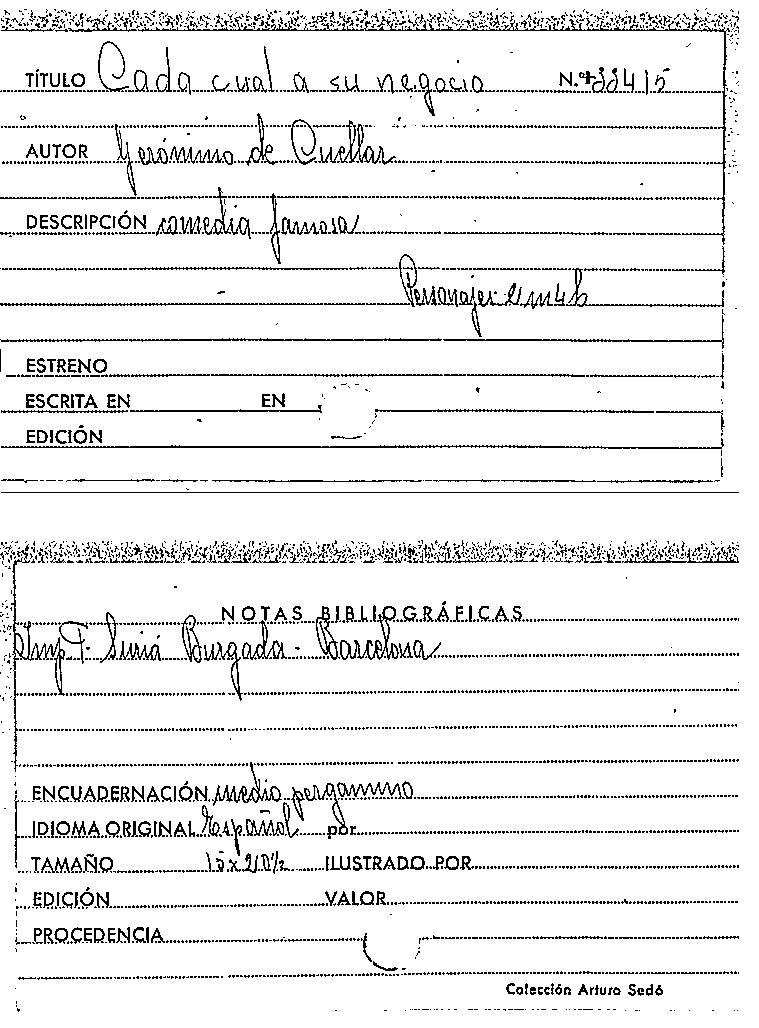 TÍTULO Cada cual a su negocio N.º 33415
AUTOR Gerónimo de Cuellar
DESCRIPCIÓN comedia famosa
Personajes
ESTRENO
ESCRITA EN EN
EDICIÓN
NOTAS BIBLIOGRÁFICAS
Imp F. Suriá Burgada - Barcelona
ENCUADERNACIÓN medio pergamino
IDIOMA ORIGINAL Español por
TAMAÑO 15x20½ ILUSTRADO POR
EDICIÓN VALOR
PROCEDENCIA
Colección Arturo Sedó